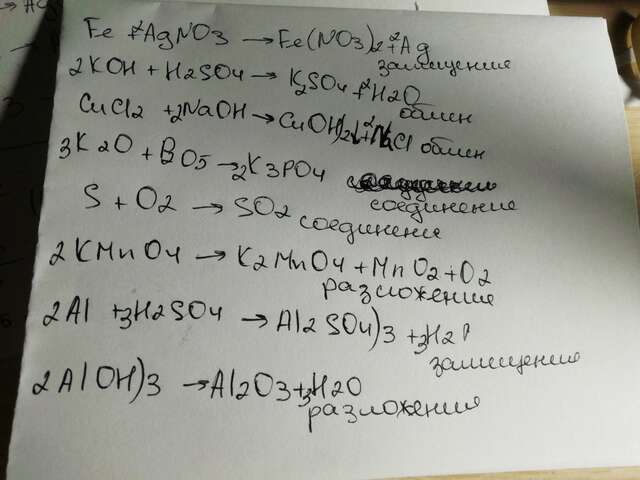 Fe + 2AgNO3 → Fe(NO3)2 + 2Ag
замищения
2KOH + H2SO4 → K2SO4 + 2H2O
обмен
CuCl2 + 2NaOH → CuOH)2↓ + 2NaCl обмен
3K2O + BO5 → 2K3PO4
соединение
S + O2 → SO2
соединение
2KMnO4 → K2MnO4 + MnO2 + O2
разложения
2Al + 3H2SO4 → Al2SO4)3 + 3H2
замищение
2AlOH)3 → Al2O3 + 3H2O
разложения